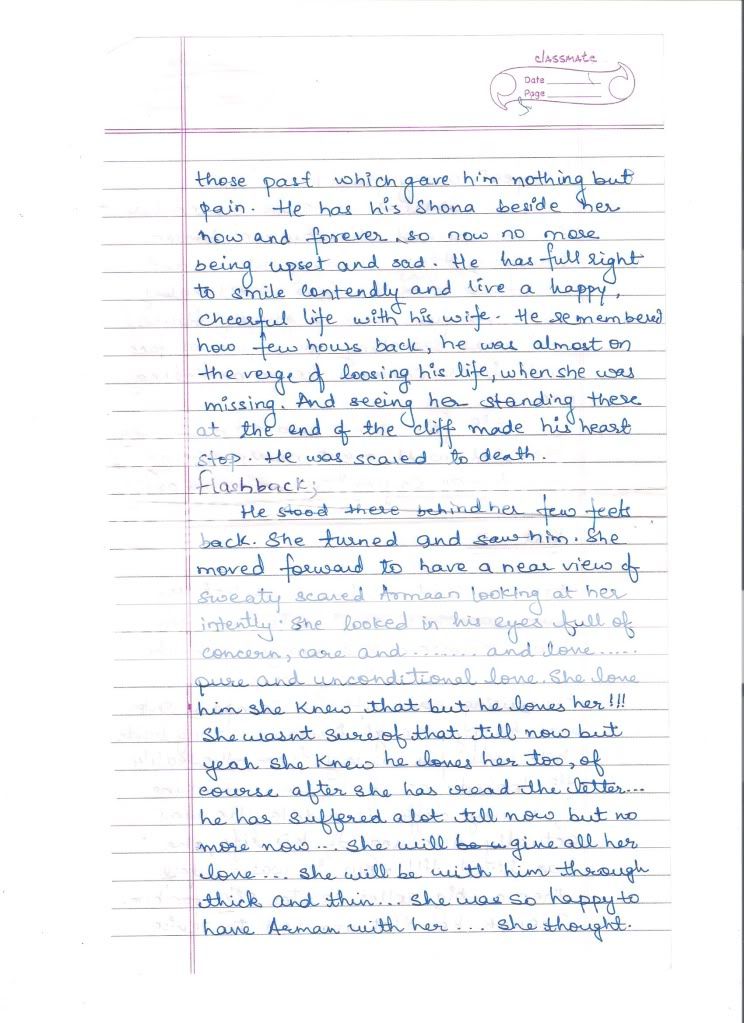 classmate
Date
Page
5
those past which gave him nothing but
pain. He has his Shona beside her
now and forever, so now no more
being upset and sad. He has full right
to smile contendly and live a happy,
cheerful life with his wife. He remembered
how few hours back, he was almost on
the verge of loosing his life, when she was
missing. And seeing her standing there
at the end of the cliff made his heart
stop. He was scared to death.
flashback;
He stood there behind her few feets
back. She turned and saw him. She
moved forward to have a near view of
sweaty scared Armaan looking at her
intently. She looked in his eyes full of
concern, care and ........ and love .....
pure and unconditional love. She love
him she knew that but he loves her!!!
She wasnt sure of that till now but
yeah she knew he loves her too, of
course after she has read the letter...
he has suffered alot till now but no
more now... She will be u give all her
love... She will be with him through
thick and thin... She was so happy to
have Arman with her ... She thought.